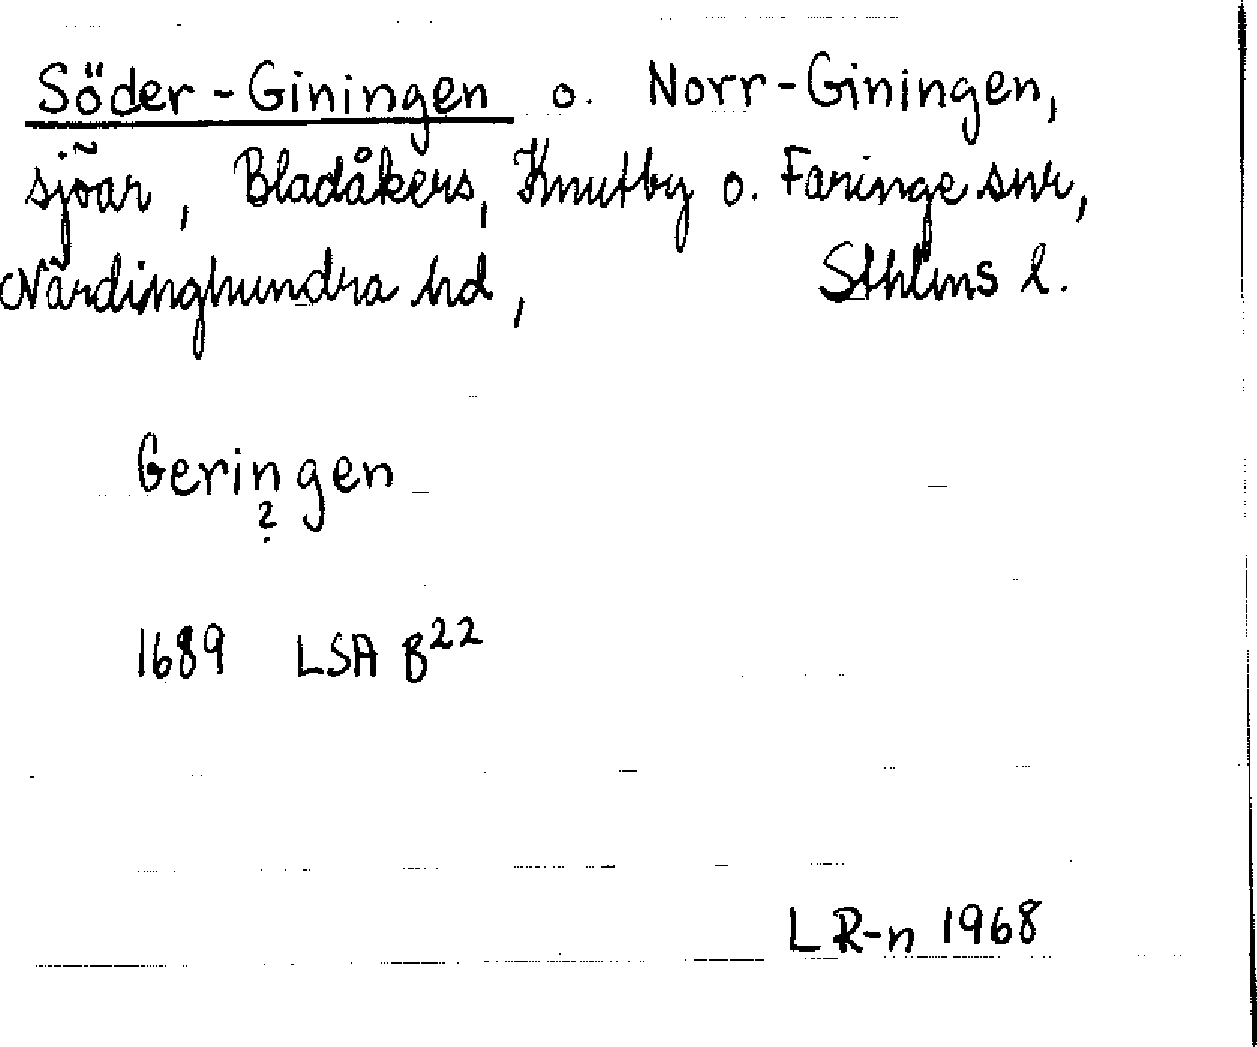 Söder-Giningen o. Norr-Giningen,
sjöar, Bladåkers, Knutby o. Faringe snr,
Närdinghundra hd, Sthlms l.
Geringen
?
1689 LSA B22
L R-n 1968